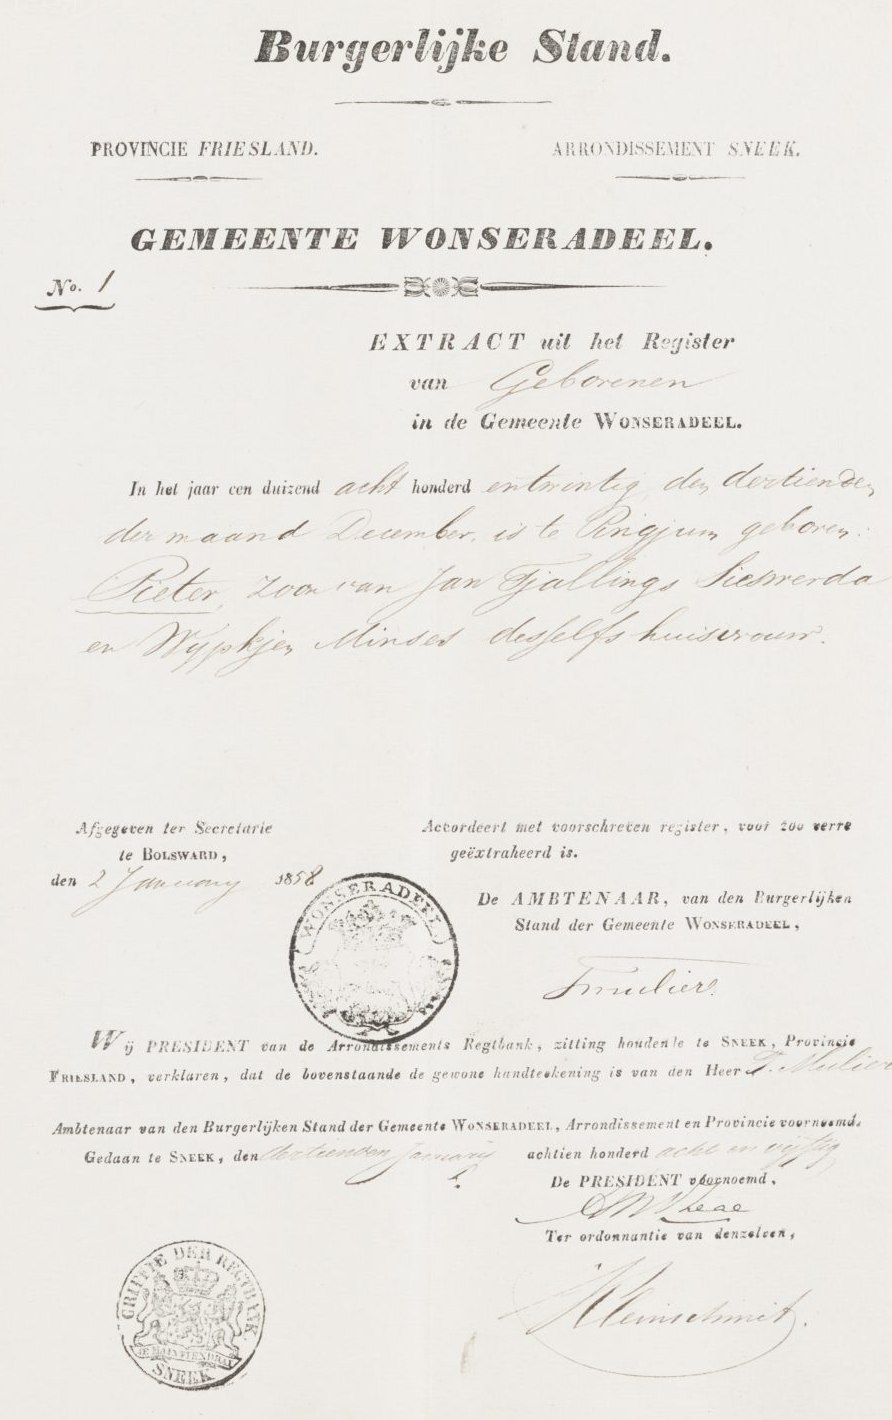 Burgerlijke Stand.
PROVINCIE FRIESLAND.
ARRONDISSEMENT SNEEK.
GEMEENTE WONSERADEEL.
No. 1
EXTRACT uit het Register
van Geborenen
in de Gemeente WONSERADEEL.
In het jaar een duizend acht honderd en twintig den dertienden
der maand December, is te Pingjum geboren:
Pieter, Zoon van Jan Tjallings Sieswerda
en Wypkjen Minses desselfs huisvrouw.
Afgegeven ter Secretarie
te BOLSWARD,
den 2 January 1858
Accordeert met voorschreven register, voor zoo verre
geëxtraheerd is.
De AMBTENAAR, van den Burgerlijken
Stand der Gemeente WONSERADEEL,
WONSERADEEL
T Mulier.
Wij PRESIDENT van de Arrondissements Regtbank, zitting houdende te SNEEK, Provincie
FRIESLAND, verklaren, dat de bovenstaande de gewone handteekening is van den Heer T. Mulier
Ambtenaar van den Burgerlijken Stand der Gemeente WONSERADEEL, Arrondissement en Provincie voornoemd.
Gedaan te SNEEK, den dertienden Januarij achtien honderd acht en vijftig
De PRESIDENT voornoemd,
Ter ordonnantie van denzelven,
Kleinschmit.
GRIFFIE DER REGTBANK
JE MAINTIENDRAI
SNEEK